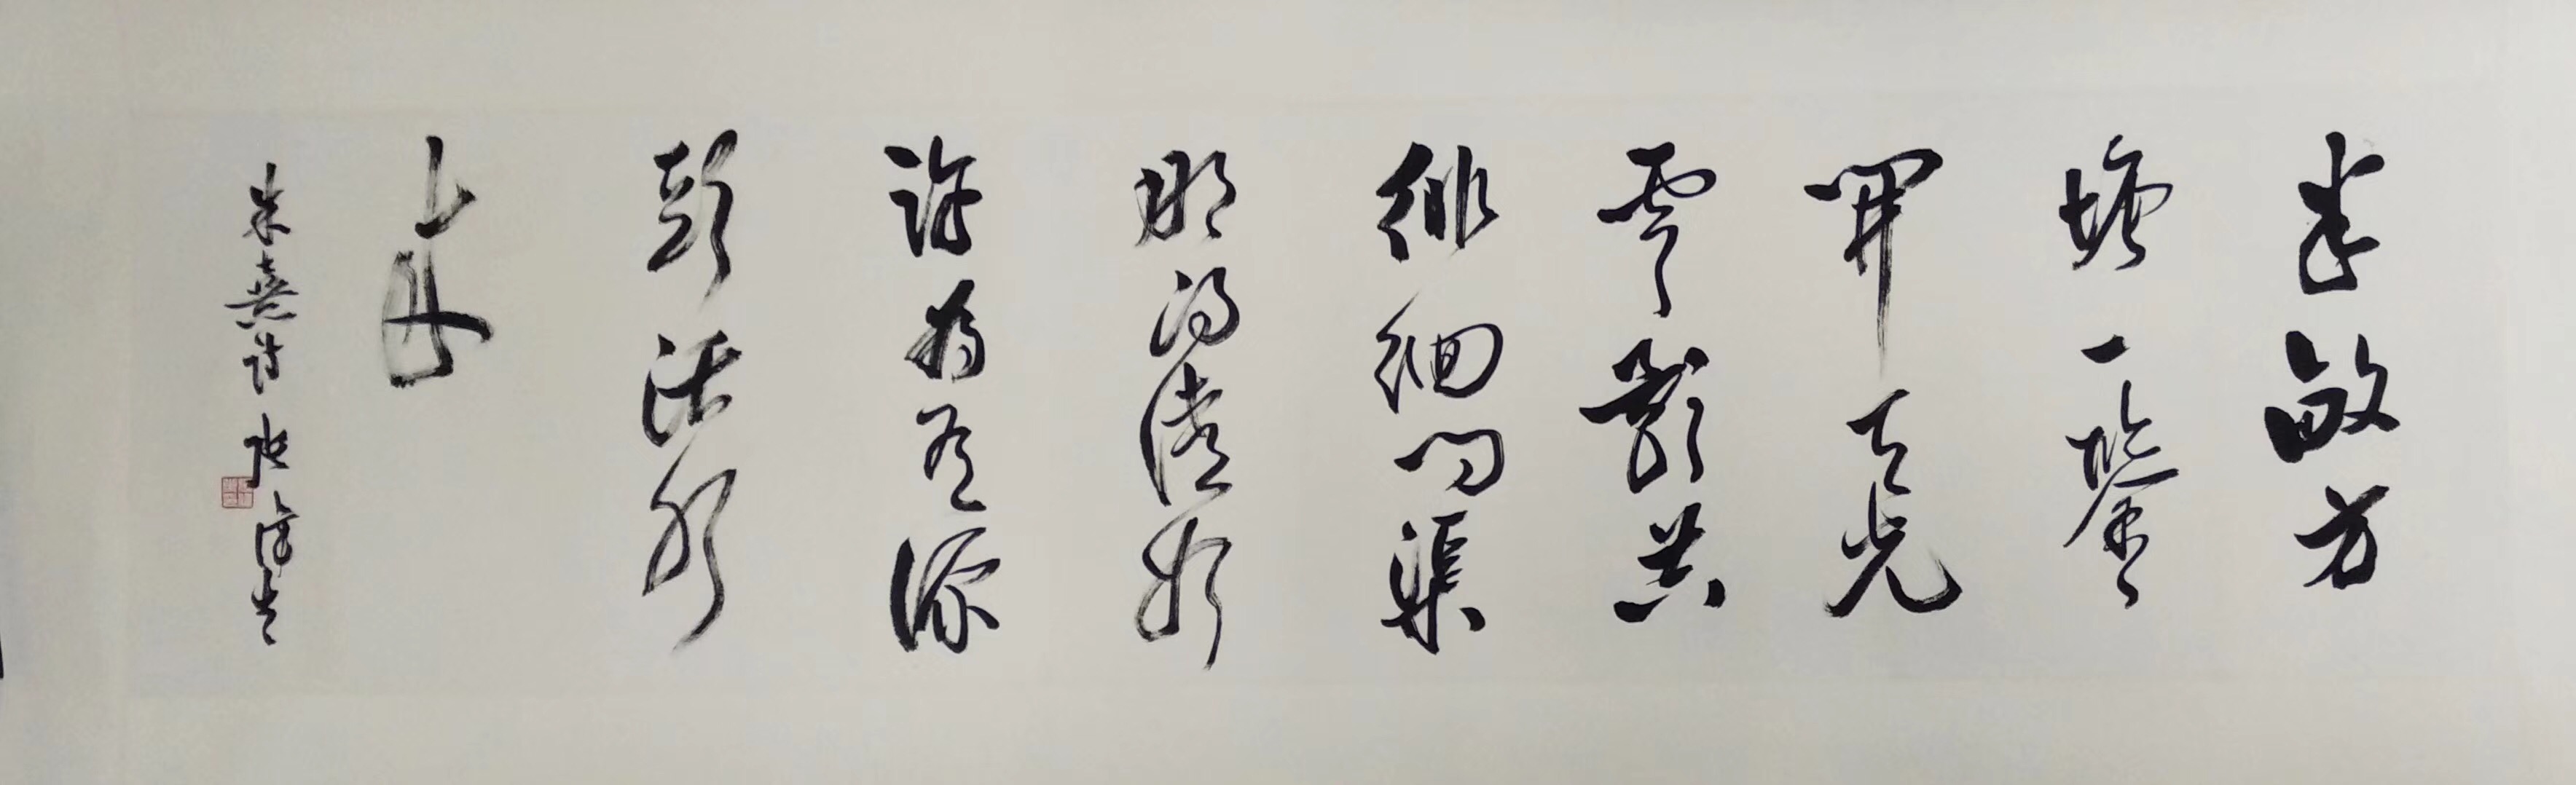 半畝方
塘一鑒
開天光
雲影共
徘徊問渠
那得清如
許為有源
頭活水
來
朱熹詩